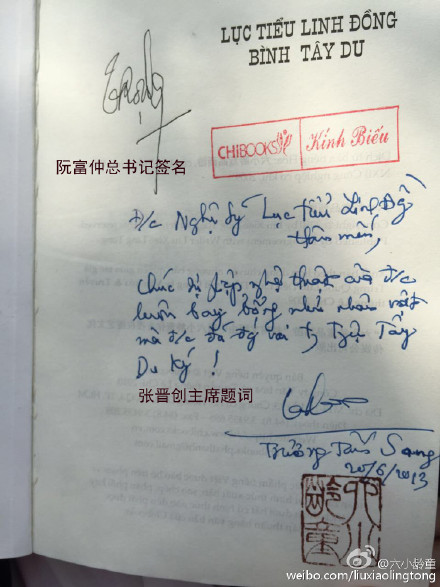 LỤC TIỂU LINH ĐỒNG
BÌNH TÂY DU
CHIBOOKS Kính Biếu
阮富仲总书记签名
Đ/c Nghệ sỹ Lục tiểu Linh Đồng
thân mến,
Chúc sự nghiệp nghệ thuật của đ/c
luôn bay bổng như nhân vật
mà đ/c đã vai Tây
Du Ký !
张晋创主席题词
Trương Tấn Sang
20/6/2013
六小龄童
@六小龄童
weibo.com/liuxiaolingtong